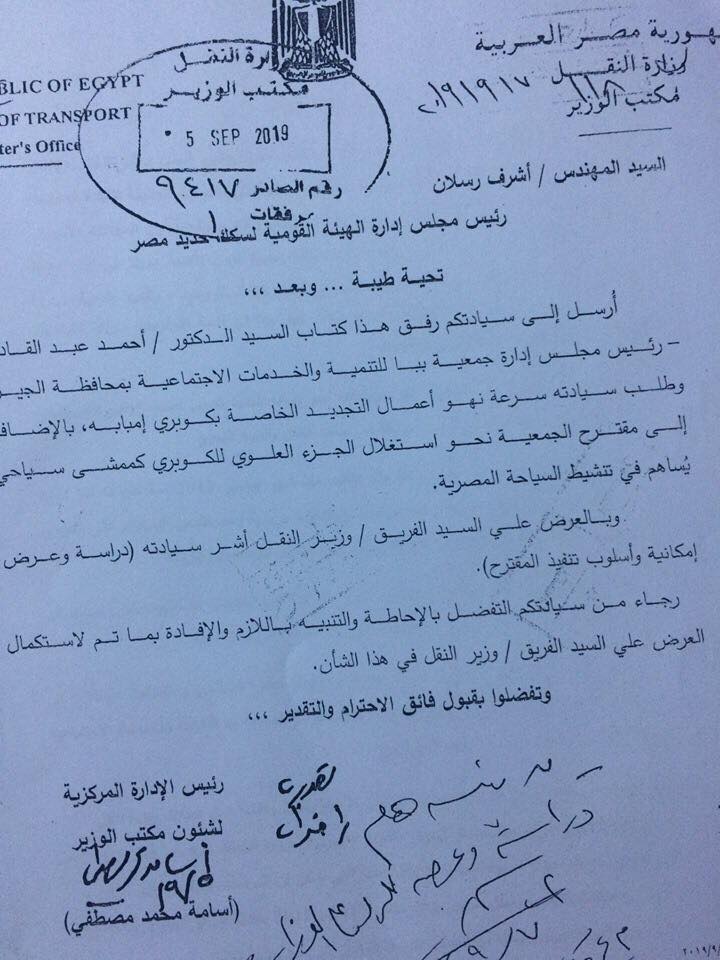 جمهورية مصر العربية
وزارة النقل
مكتب الوزير
BLIC OF EGYPT
OF TRANSPORT
ter's Office
وزارة النقل
مكتب الوزير
5 SEP 2019
رقم الصادر ٩٤١٧
مرفقات ١
السيد المهندس / أشرف رسلان
رئيس مجلس إدارة الهيئة القومية لسكك حديد مصر
تحية طيبة ... وبعد ،،،
أُرسل إلى سيادتكم رفق هذا كتاب السيد الدكتور / أحمد عبد القاد
– رئيس مجلس إدارة جمعية بيا للتنمية والخدمات الاجتماعية بمحافظة الجيز
وطلب سيادته سرعة نهو أعمال التجديد الخاصة بكوبري إمبابه، بالإضاف
إلى مقترح الجمعية نحو استغلال الجزء العلوي للكوبري كممشى سياحي
يُساهم في تنشيط السياحة المصرية.
وبالعرض علي السيد الفريق / وزير النقل أشر سيادته (دراسة وعرض
إمكانية وأسلوب تنفيذ المقترح).
رجاء من سيادتكم التفضل بالإحاطة والتنبيه باللازم والإفادة بما تم لاستكمال
العرض علي السيد الفريق / وزير النقل في هذا الشأن.
وتفضلوا بقبول فائق الاحترام والتقدير ،،،
رئيس الإدارة المركزية
لشئون مكتب الوزير
(أسامة محمد مصطفي)